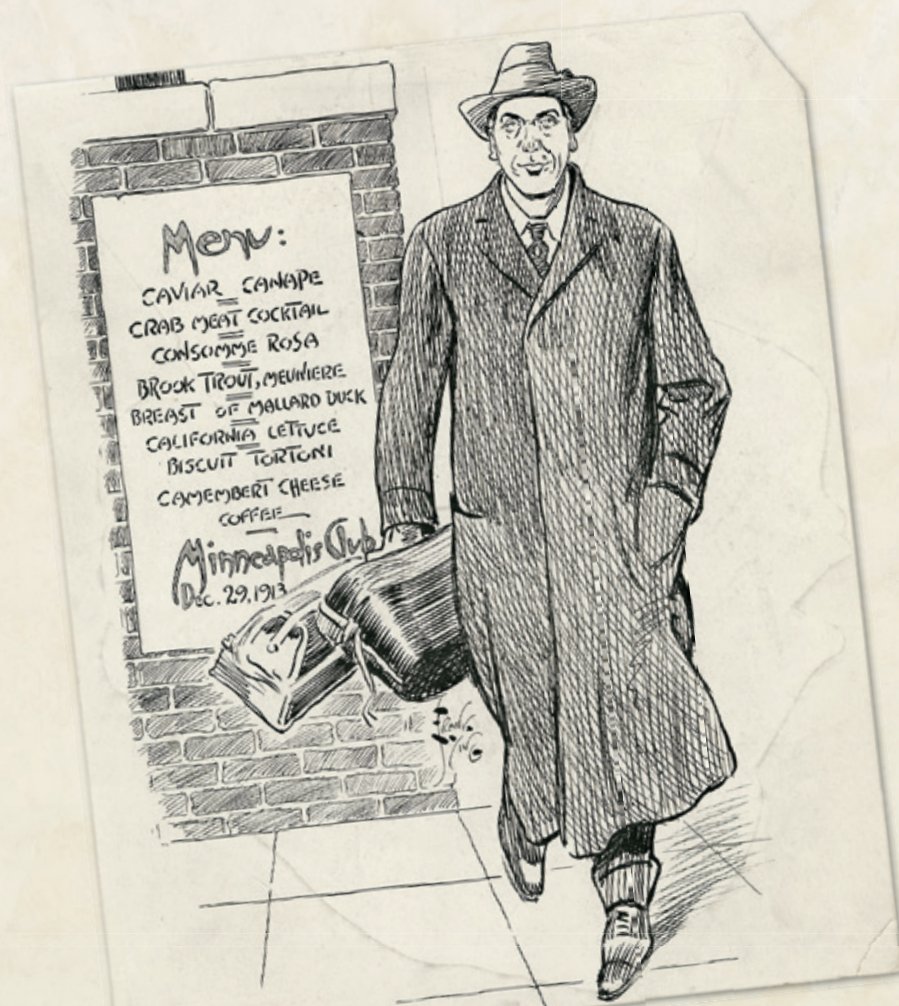 Menu:
CAVIAR CANAPE
CRAB MEAT COCKTAIL
CONSOMME ROSA
BROOK TROUT, MEUNIERE
BREAST OF MALLARD DUCK
CALIFORNIA LETTUCE
BISCUIT TORTONI
CAMEMBERT CHEESE
COFFEE
Minneapolis Club
Dec. 29, 1913